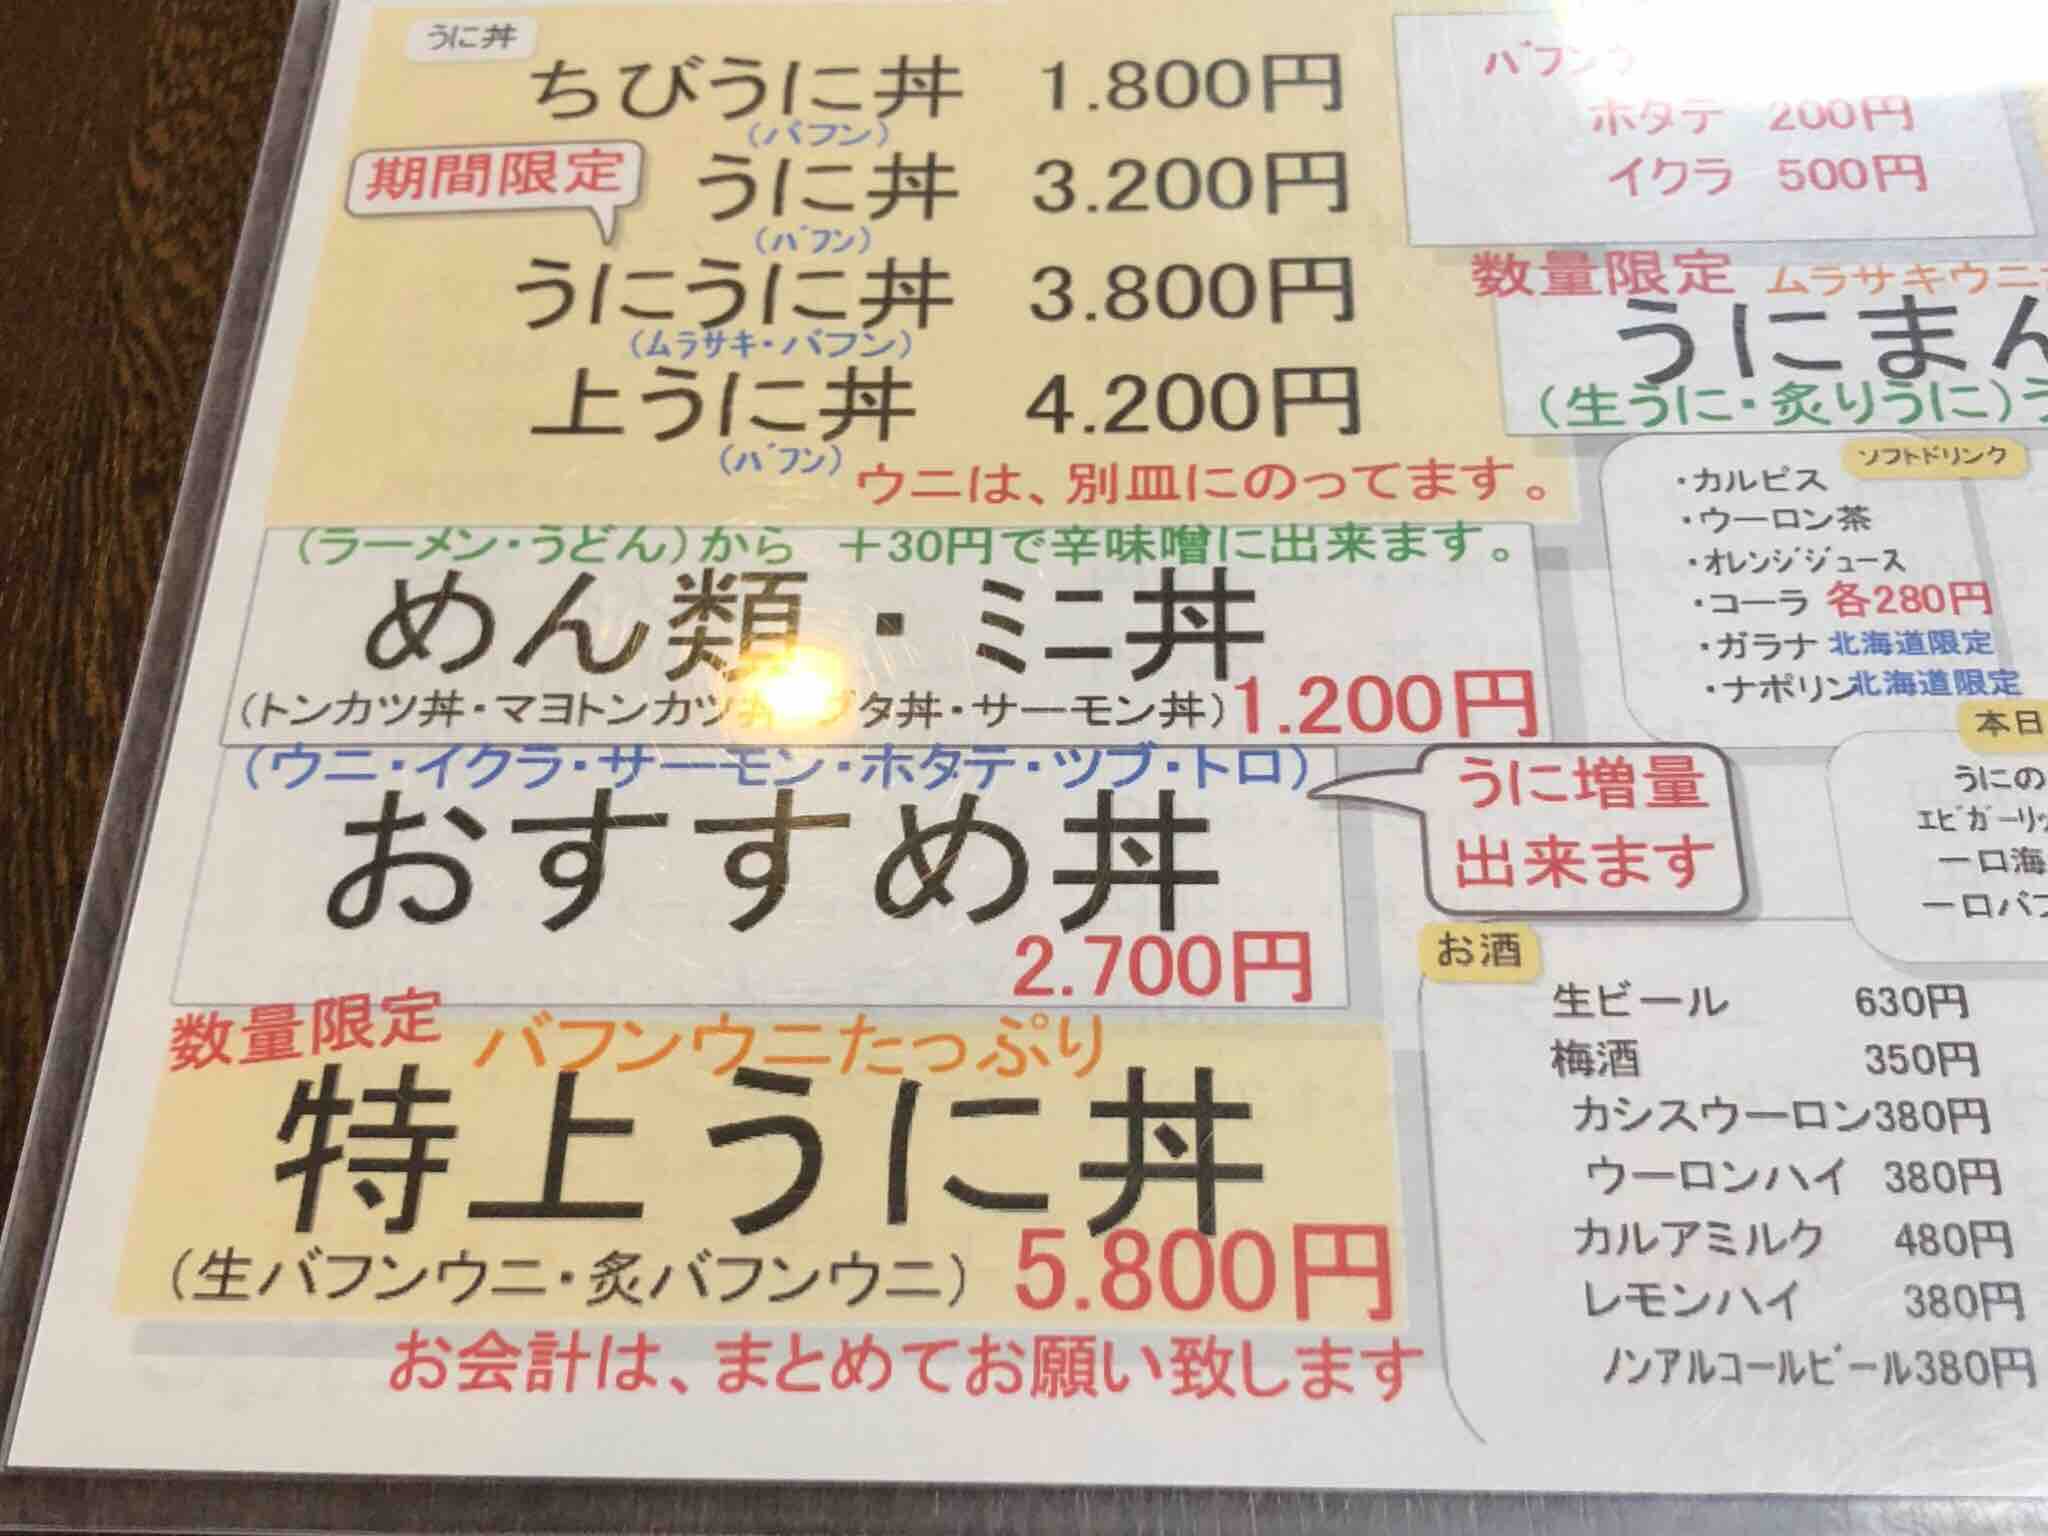 うに丼
ちびうに丼 1.800円
(バフン)
期間限定
うに丼 3.200円
(バフン)
うにうに丼 3.800円
(ムラサキ・バフン)
上うに丼 4.200円
(バフン)
ウニは、別皿にのってます。
(ラーメン・うどん)から +30円で辛味噌に出来ます。
めん類・ミニ丼
(トンカツ丼・マヨトンカツ丼 タ丼・サーモン丼) 1.200円
(ウニ・イクラ・サーモン・ホタテ・ツブ・トロ)
おすすめ丼
2.700円
うに増量
出来ます
数量限定 バフンウニたっぷり
特上うに丼
(生バフンウニ・炙バフンウニ) 5.800円
お会計は、まとめてお願い致します
バフンウ
ホタテ 200円
イクラ 500円
数量限定 ムラサキウニ
うにまん
(生うに・炙りうに)う
ソフトドリンク
・カルピス
・ウーロン茶
・オレンジジュース
・コーラ 各280円
・ガラナ 北海道限定
・ナポリン北海道限定
本日
うにの
エビガーリッ
一口海
一口バフ
お酒
生ビール 630円
梅酒 350円
カシスウーロン380円
ウーロンハイ 380円
カルアミルク 480円
レモンハイ 380円
ノンアルコールビール380円